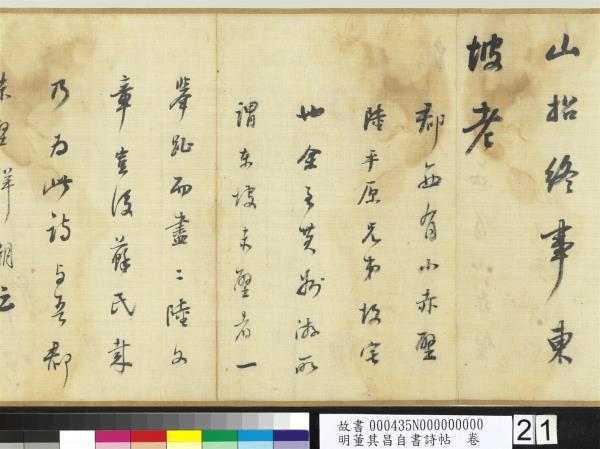 山招終事東
坡老
郡西有小赤壁
陸平原兄弟故宅
也余至黃州游所
謂東坡赤壁者一
舉趾而盡二陸文
章豈後蘇氏哉
乃為此詩與吾郡
赤壁解嘲云
故書 000435N000000000
明董其昌自書詩帖 卷
21